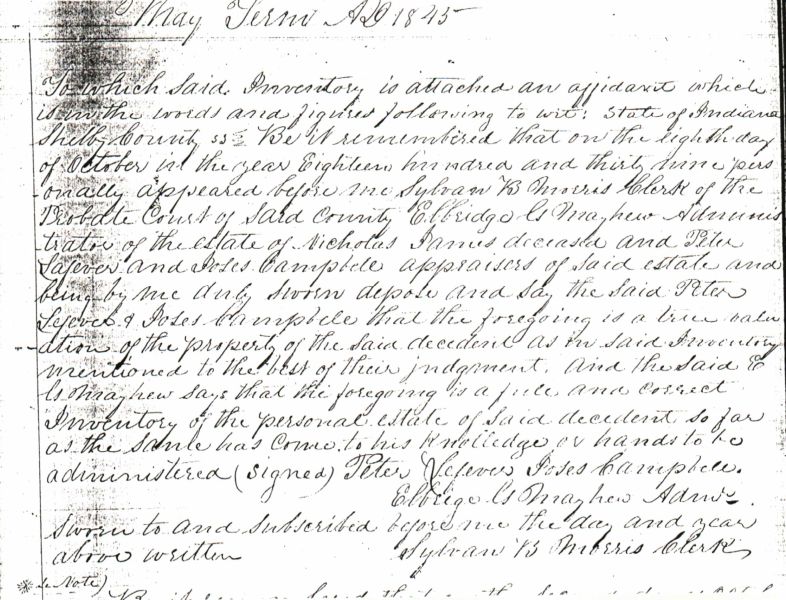 May Term AD 1845
To which said Inventory is attached an affidavit which
is in the words and figures following to wit: State of Indiana
Shelby County ss Be it remembered that on the eighth day
of October in the year Eighteen hundred and thirty nine pers
onally appeared before me Sylvan B Morris Clerk of the
Probate Court of Said County Elbridge G Mayhew Adminis
trator of the estate of Nicholas James deceased and Peter
Lefever and Joses Campbele appraisers of said estate and
being by me duly sworn depose and say the said Peter
Lefever & Joses Campbele that the foregoing is a true valu
ation of the property of the said decedent as in said Inventory
mentioned to the best of their judgment, and the said E
G Mayhew says that the foregoing is a full and correct
Inventory of the personal estate of said decedent so far
as the same has come to his knolledge or hands to be
administered (signed) Peter Lefever Joses Campbele.
Elbrige G Mayhew Admr
Sworn to and subscribed before me the day and year
above written Sylvan B Morris Clerk
Note)